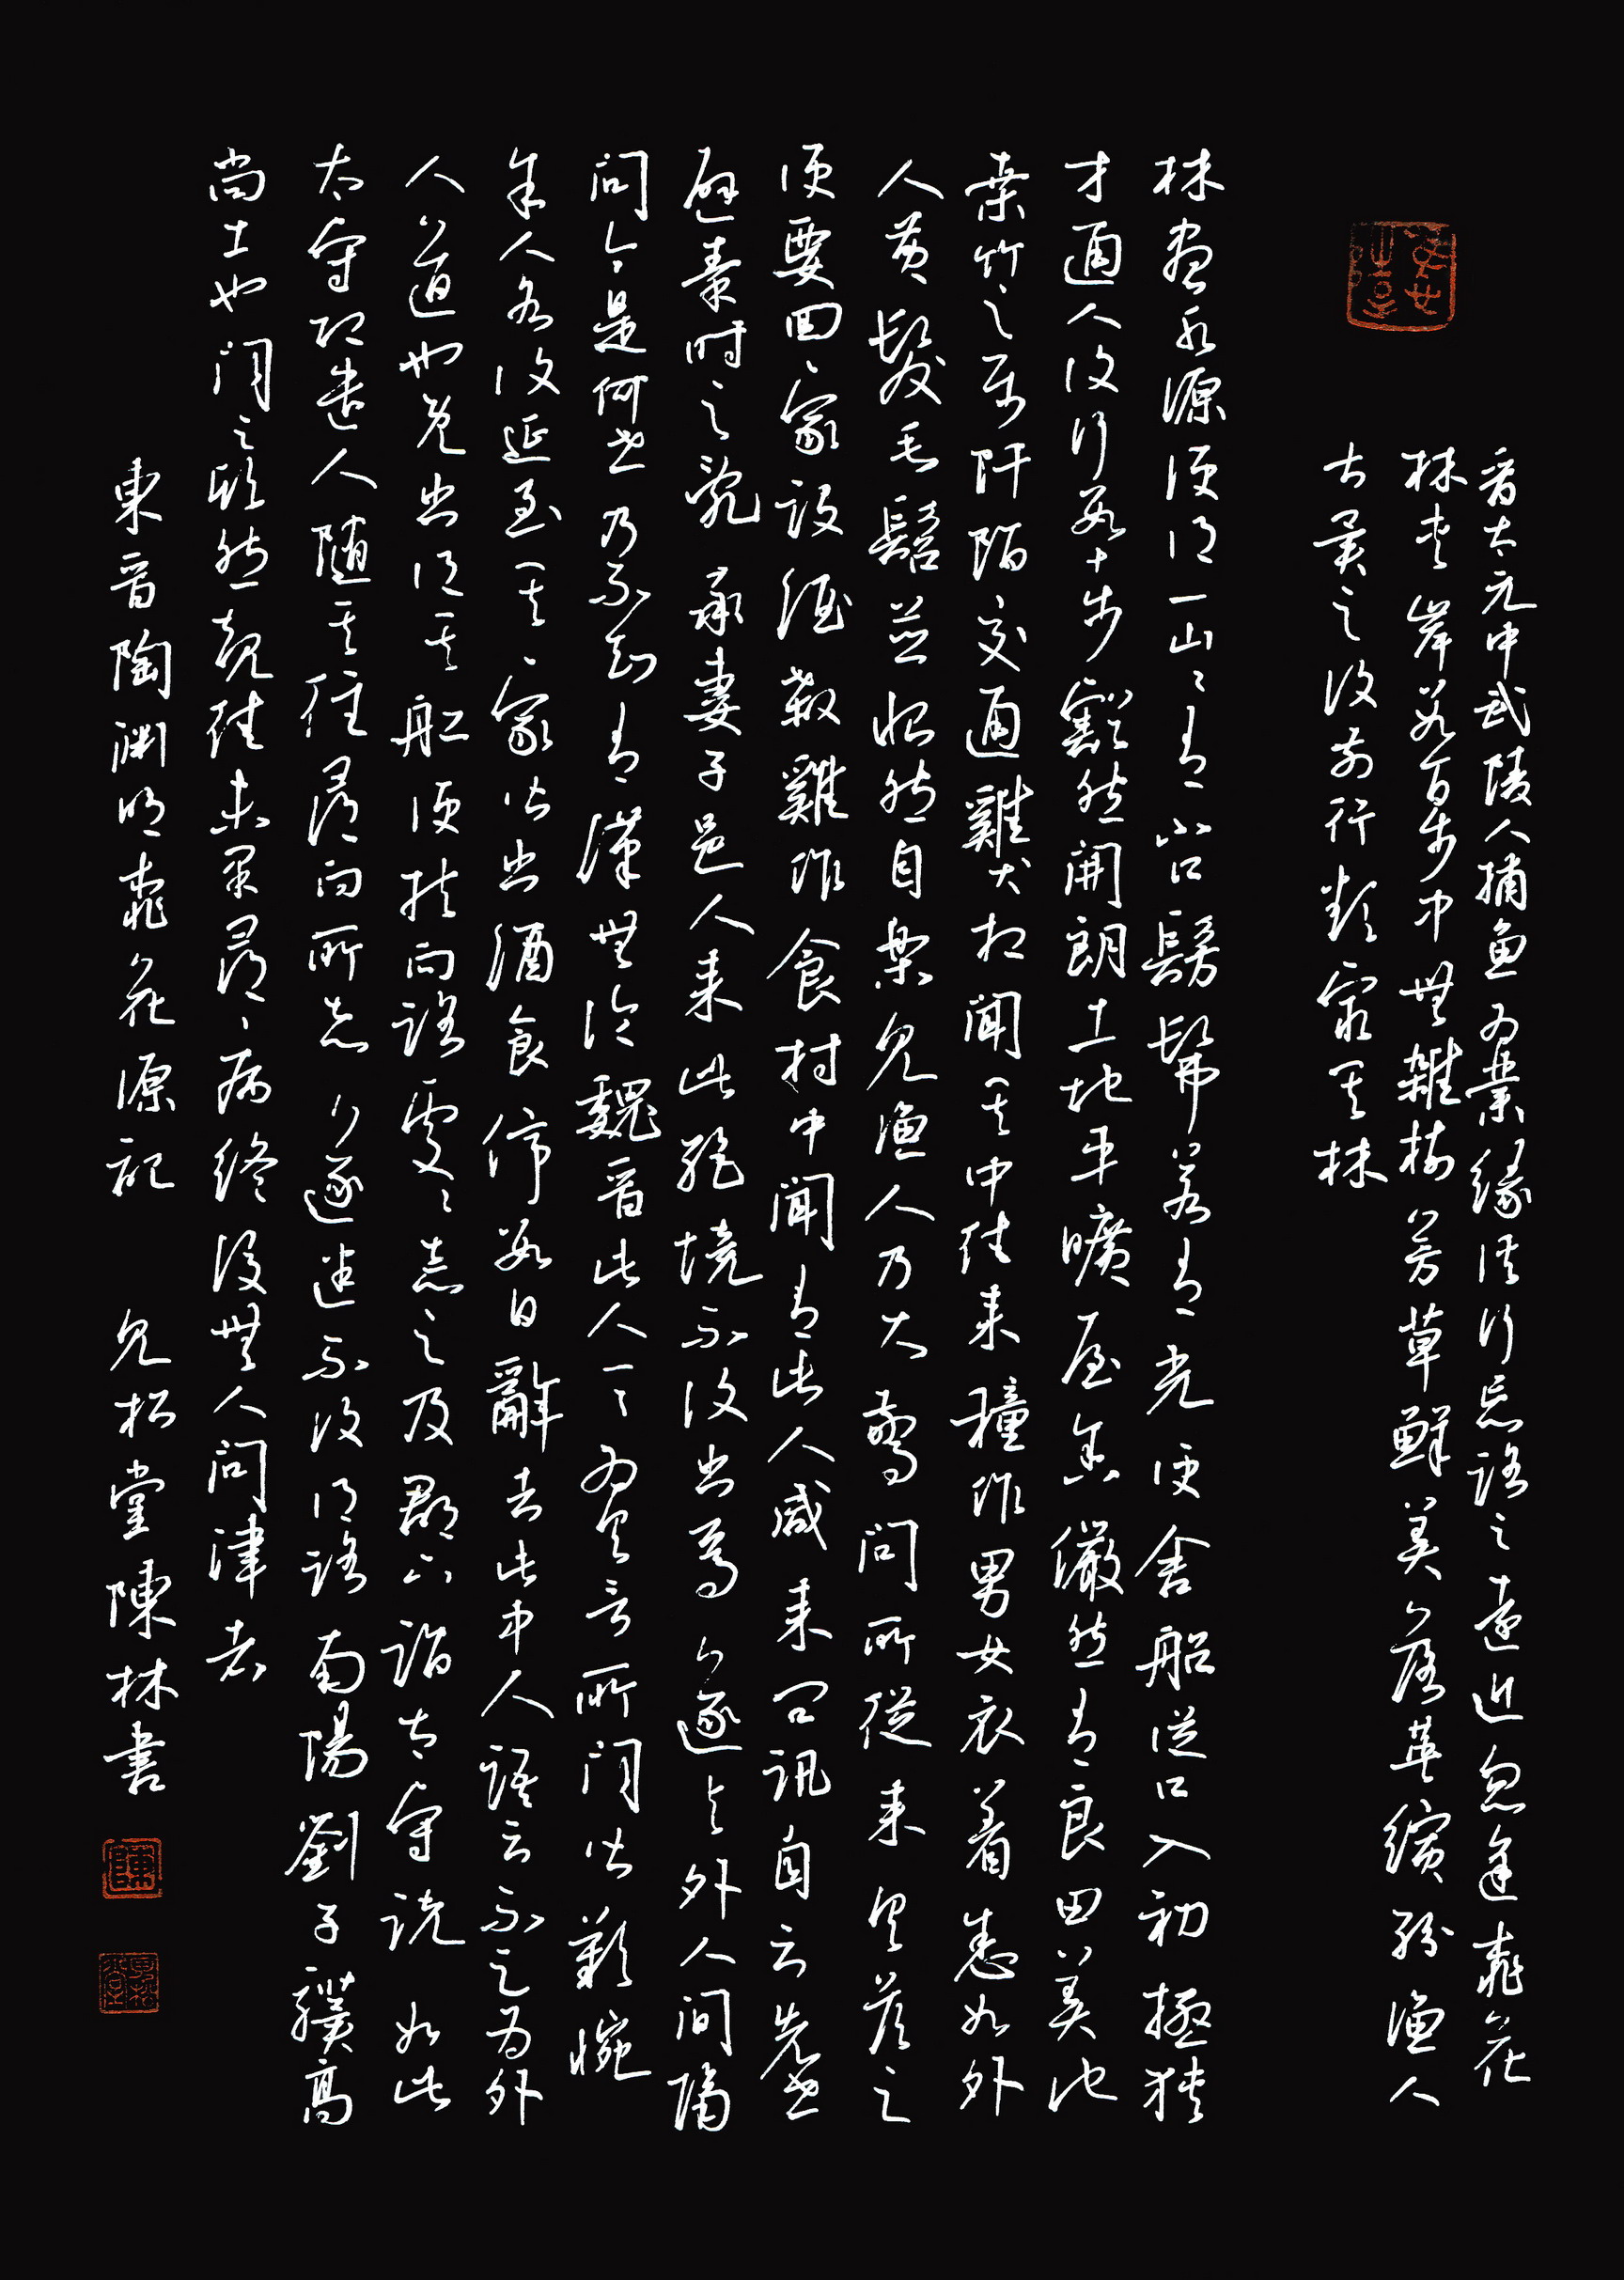 晉太元中武陵人捕魚為業緣溪行忘路之遠近忽逢桃花
林夾岸數百步中無雜樹芳草鮮美落英繽紛漁人
甚異之復前行欲窮其林
林盡水源便得一山々有小口髣髴若有光便舍船從口入初極狹
才通人復行數十步豁然開朗土地平曠屋舍儼然有良田美池
桑竹之屬阡陌交通雞犬相聞其中往來種作男女衣着悉如外
人黃髮垂髫並怡然自樂見漁人乃大驚問所從來具答之
便要回家設酒殺雞作食村中聞有此人咸來問訊自云先世
避秦時之亂率妻子邑人來此絕境不復出焉遂與外人間隔
問今是何世乃不知有漢無論魏晉此人一々為具言所聞皆歎惋
餘人各復延至其家皆出酒食停數日辭去此中人語云不足為外
人道也既出得其船便扶向路處々誌之及郡下詣太守說如此
太守即遣人隨其往尋向所誌遂迷不復得路南陽劉子驥高
尚士也聞之欣然規往未果尋病終後無人問津者
東晉陶淵明桃花源記 見松堂陳林書
陳
見松堂